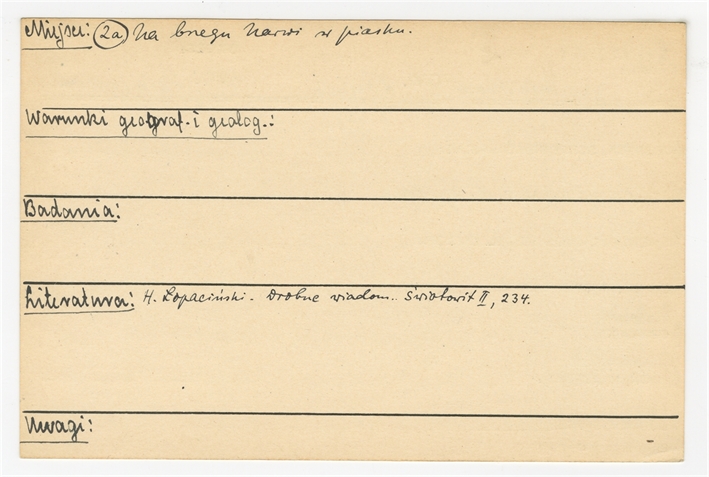 Miejsce: (2a) Na brzegu Narwi w piasku.
Warunki geograf. i geolog.:
Badania:
Literatura: H. Łopaciński - Drobne wiadom.. Światowit II, 234.
Uwagi: